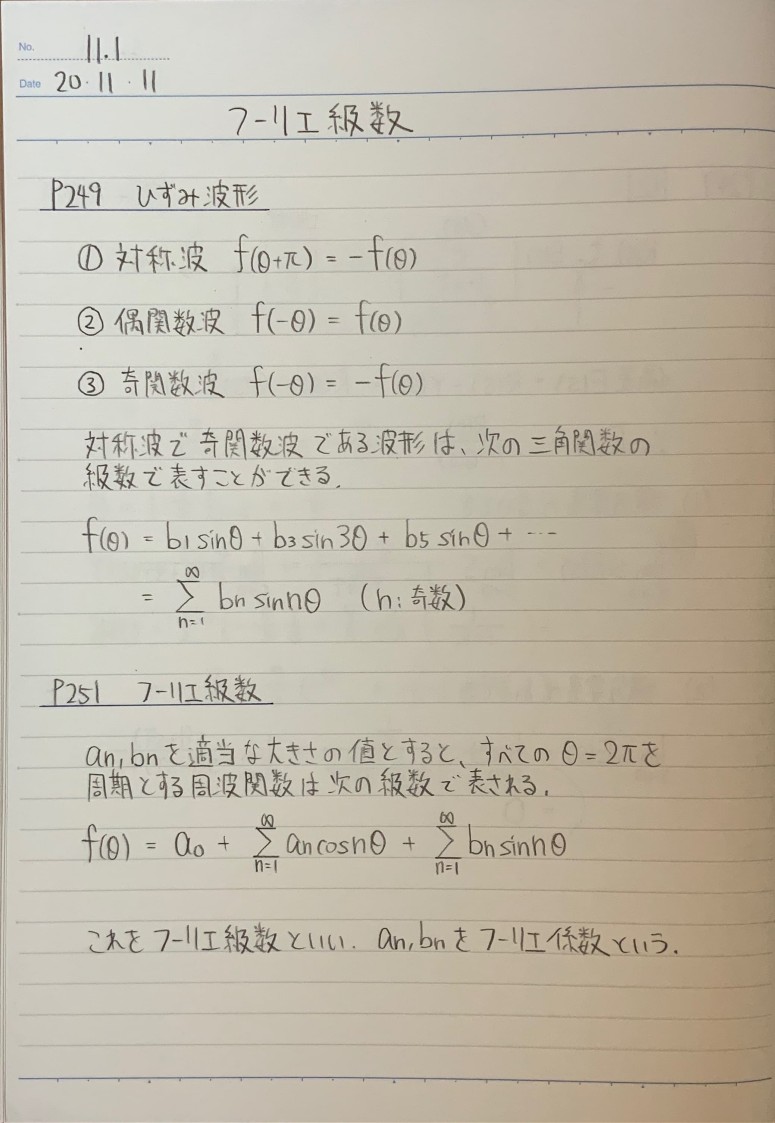 No. 11.1
Date 20・11・11
フーリエ級数
P249 ひずみ波形
① 対称波 f(θ+π) = -f(θ)
② 偶関数波 f(-θ) = f(θ)
③ 奇関数波 f(-θ) = -f(θ)
対称波で奇関数波である波形は、次の三角関数の
級数で表すことができる.
f(θ) = b1 sinθ + b3 sin3θ + b5 sinθ + …
= ∞ Σ n=1 bn sin nθ (n: 奇数)
P251 フーリエ級数
an, bnを適当な大きさの値とすると、すべての θ=2πを
周期とする周波関数は次の級数で表される.
f(θ) = a0 + ∞ Σ n=1 an cos nθ + ∞ Σ n=1 bn sin nθ
これをフーリエ級数といい. an, bnをフーリエ係数という.